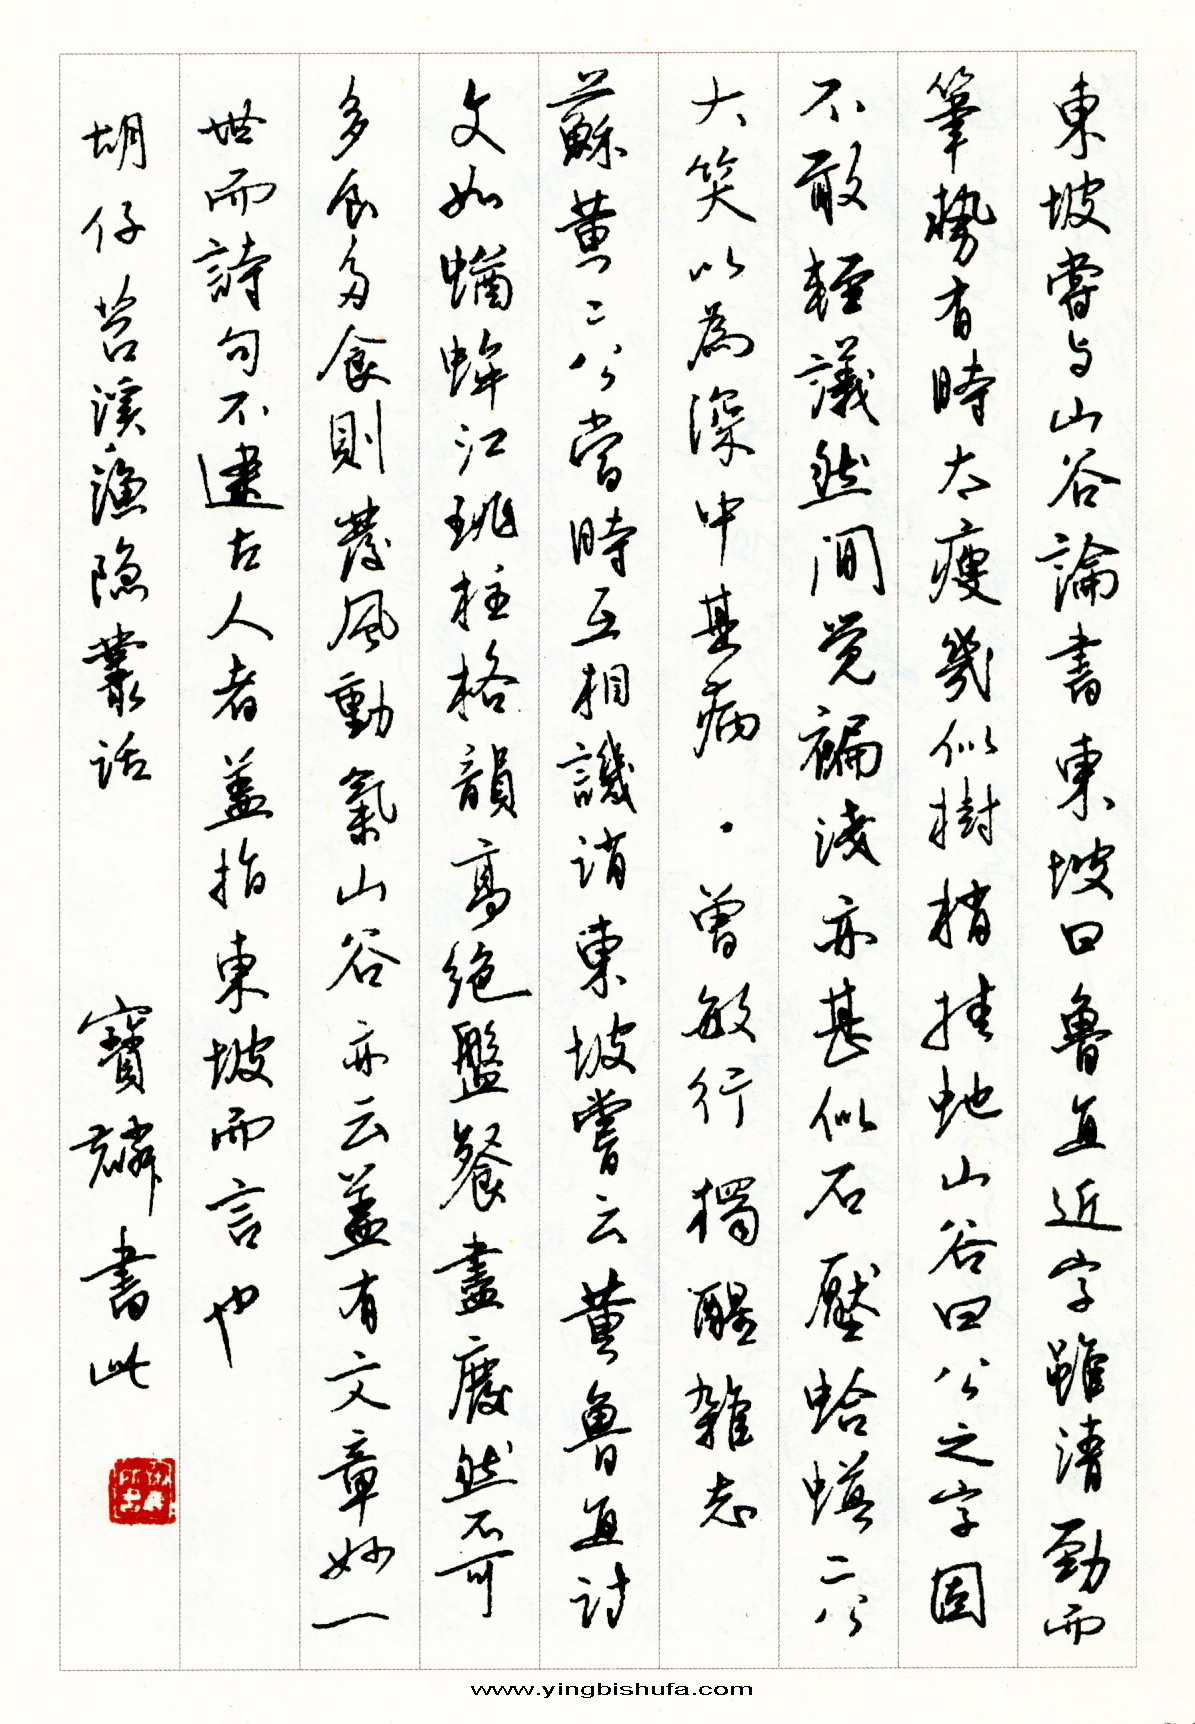 東坡嘗与山谷論書東坡曰魯直近字雖清勁而
筆勢有時太瘦幾似樹梢挂蛇山谷曰公之字固
不敢輕議然間覺褊淺亦甚似石壓蛤蟆二公
大笑以為深中其病·曾敏行 獨醒雜志
蘇黄二公當時互相譏誚東坡嘗云黄魯直詩
文如蝤蛑江珧柱格韻高絶盤餐盡廢然不可
多食多食則發風動氣山谷亦云蓋有文章妙一
世而詩句不逮古人者蓋指東坡而言也
胡仔苕溪漁隐叢話 寶麟書此
www.yingbishufa.com